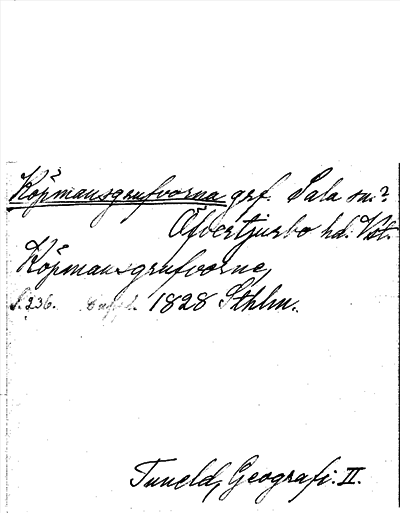 Köpmansgrufvorna grf. Sala sn.?
Öfvertjurbo hd. Vstm.
Köpmansgrufvorne,
S. 236. 1828 Sthlm.
Tuneld, Geografi. II.